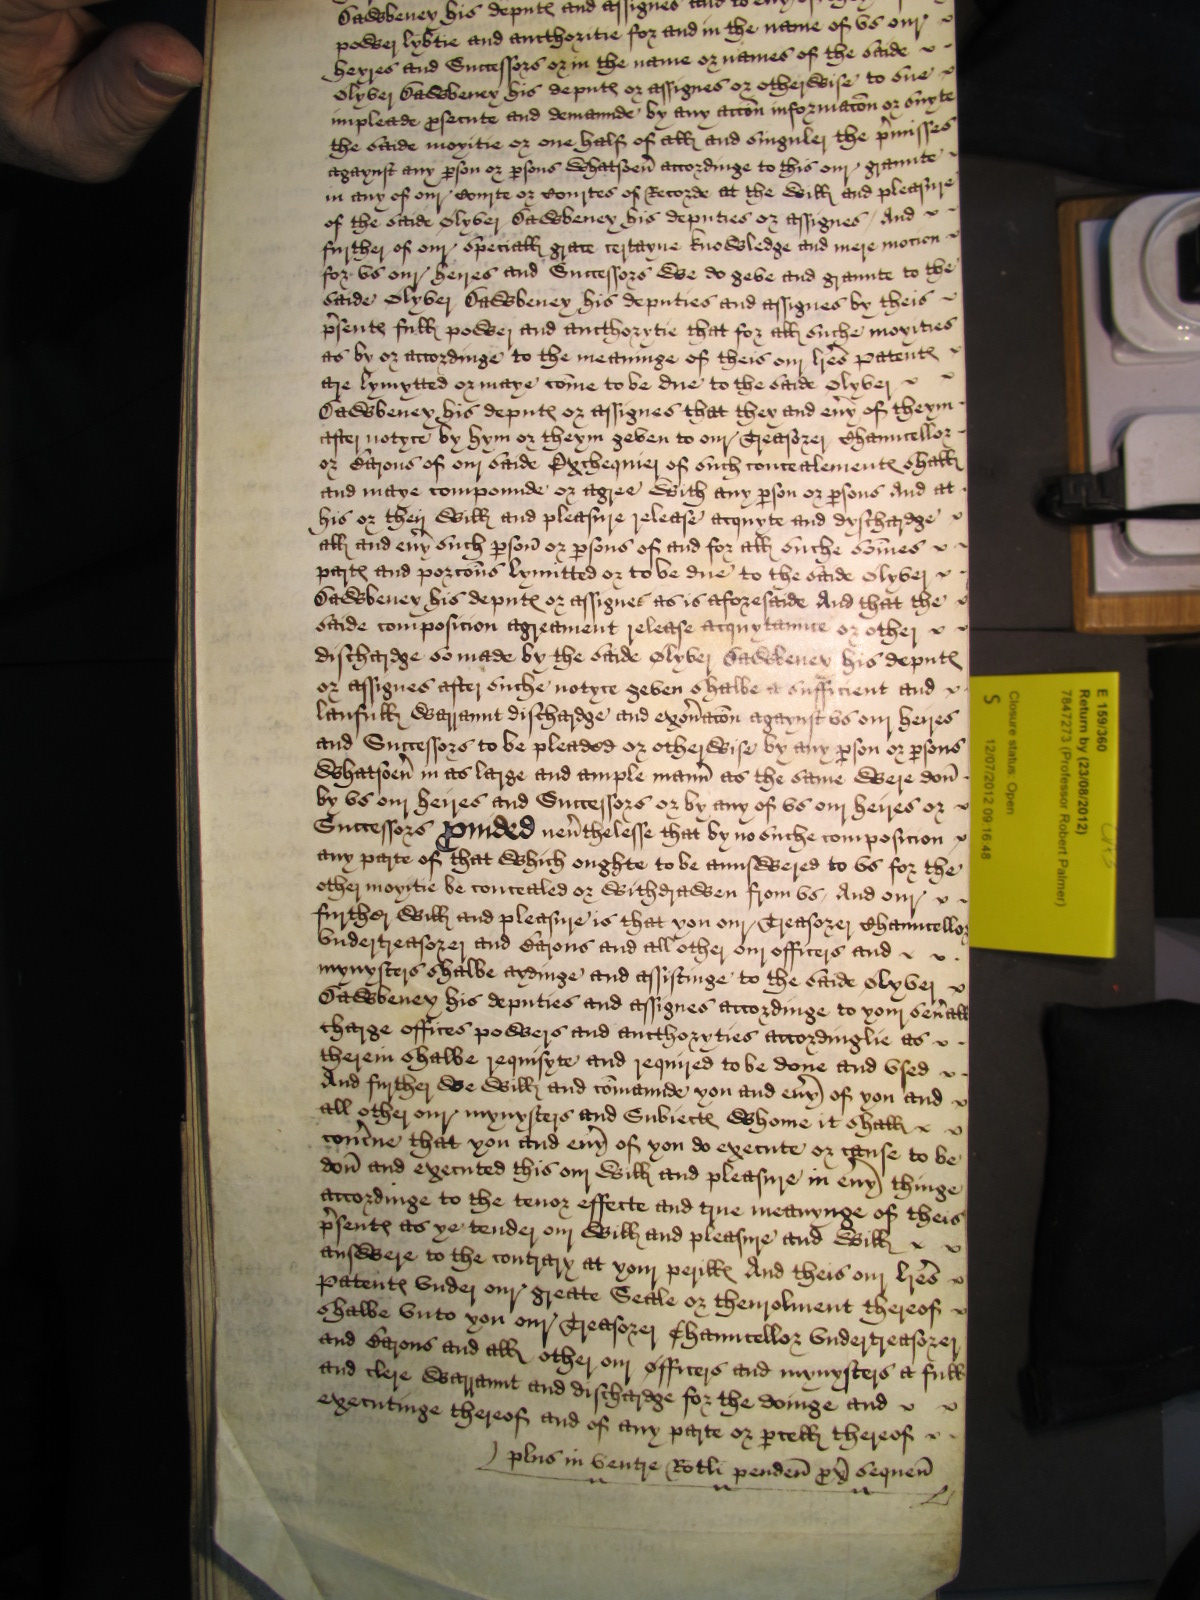 Dawbeney his deput and assignes and to eny of they
power lybtie and aucthoritie for and in the name of vs our
heyres and Successors or in the name or names of the saide
Olyver Dawbeney his deput or assignes or otherwise to sue
impleade psecute and demaunde by any accon informacon or suyte
the saide moyitie or one half of all and singuler the pmisses
agaynst any pson or psons whatsoeu accordinge to this our graunte
in any of our Courte or Courtes of Recorde at the will and pleasure
of the saide Olyver Dawbeney his deputies or assignes / And
further of our speciall grace certayne knowledge and mere motion
for vs our heires and Successors We do geve and graunte to the
saide Olyver Dawbeney his deputies and assignes by theis
psent full power and aucthorytie that for all suche moyities
as by or accordinge to the meaninge of theis our lres Patent
are lymytted or maye come to be due to the saide Olyver
Dawbeney his deput or assignes that they and eury of theym
after notyce by hym or theym geven to our Treasorer Chauncellor
or Barons of our saide Exchequier of such concealement shall
and maye compounde or agree with any pson or psons And at
his or their will and pleasure release acquyte and dyschardge
all and eury such pson or psons of and for all suche somes
part and porcons lymitted or to be due to the saide Olyver
Dawbeney his deput or assignes as is aforesaide And that the
saide composicion agreament release acquytaunce or other
dischardge so made by the saide Olyver Dawbeney his deput
or assignes after suche notyce geven shalbe a sufficient and
laufull warrannt dischardge and exonacon agaynst vs our heires
and Successors to be pleaded or otherwise by any pson or psons
whatsoeu in as large and ample mann as the same were don
by vs our heires and Successors or by any of vs our heires or
Successors Prouided neuthelesse that by no suche composicion
any parte of that which oughte to be aunswered to vs for the
other moyitie be concealed or withdrawen from vs / And our
further will and pleasure is that you our Treasorer Chauncellor
vndertreasorer and Barons and all other our officers and
mynysters shalbe aydinge and assistinge to the saide Olyver
Dawbeney his deputies and assignes accordinge to your seuall
charge offices powers and aucthoryties accordinglie as
therein shalbe requisyte and required to be done and vsed
And further we will and comaunde you and eury of you and
all other our mynysters and Subiect whome it shall
concne that you and eury of you do execute or cause to be
don and executed this our will and pleasure in eury thinge
accordinge to the tenor effecte and true meanynge of theis
psent as ye tender our will and pleasure and will
answere to the contrary at your perill And theis our lres
Patent vnder our greate Seale or thenrolment thereof
shalbe vnto you our Treasorer Chauncellor vndertreasorer
and Barons and all other our officers and mynysters a full
and clere warrannt and dischardge for the doinge and
executinge thereof and of any parte or pcell thereof
plus in ventre Rotli penden px sequen
E 159/360
Return by (23/08/2012)
7847273 (Professor Robert Palmer)
Closure status: Open
S 12/07/2012 09:16:48